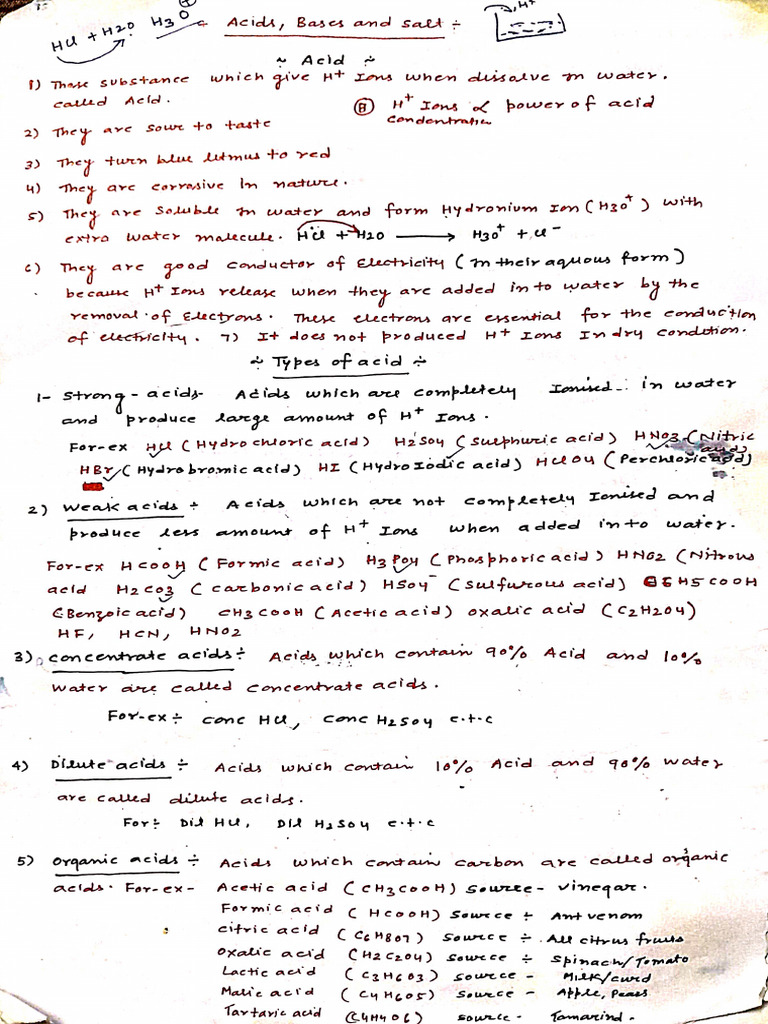 HCl + H2O H3O⊕ Acids, Bases and Salt ÷ H+
~ Acid ÷
1) Those substance which give H+ Ions when dissolve in water.
called Acid. Ⓑ H+ Ions ∝ power of acid
condentration
2) They are sour to taste
3) They turn blue litmus to red
4) They are corrosive In nature.
5) They are soluble in water and form Hydronium Ion (H3O+) with
extra water molecule. HCl + H2O ⟶ H3O+ + Cl−
6) They are good conductor of Electricity (in their aquous form)
because H+ Ions release when they are added in to water by the
removal of Electrons. These electrons are essential for the conduction
of electricity. 7) It does not produced H+ Ions In dry condition.
~ Types of acid ÷
1- Strong-acids- Acids which are completely Ionised in water
and produce large amount of H+ Ions.
For-ex HCl (Hydrochloric acid) H2SO4 (Sulphuric acid) HNO3 (Nitric acid)
HBr (Hydrobromic acid) HI (Hydro Iodic acid) HClO4 (Perchloric acid)
2) Weak acids ÷ Acids which are not completely Ionised and
produce less amount of H+ Ions when added in to water.
For-ex HCOOH (Formic acid) H3PO4 (Phosphoric acid) HNO2 (Nitrous
acid H2CO3 (carbonic acid) HSO4− (Sulfurous acid) C6H5COOH
(Benzoic acid) CH3COOH (Acetic acid) oxalic acid (C2H2O4)
HF, HCN, HNO2
3) concentrate acids ÷ Acids which contain 90% Acid and 10%
water are called concentrate acids.
For-ex ÷ conc HCl, conc H2SO4 e.t.c
4) Dilute acids ÷ Acids which contain 10% Acid and 90% water
are called dilute acids.
For ÷ Dil HCl, Dil H2SO4 e.t.c
5) organic acids ÷ Acids which contain carbon are called organic
acids. For-ex- Acetic acid (CH3COOH) source - vinegar.
Formic acid (HCOOH) source ÷ Ant venom
citric acid (C6H8O7) source ÷ All citrus fruits
oxalic acid (H2C2O4) source ÷ spinach/Tomato
Lactic acid (C3H6O3) source - Milk/curd
Malic acid (C4H6O5) source - Apple, Pears
Tartaric acid (C4H4O6) source - Tamarind.